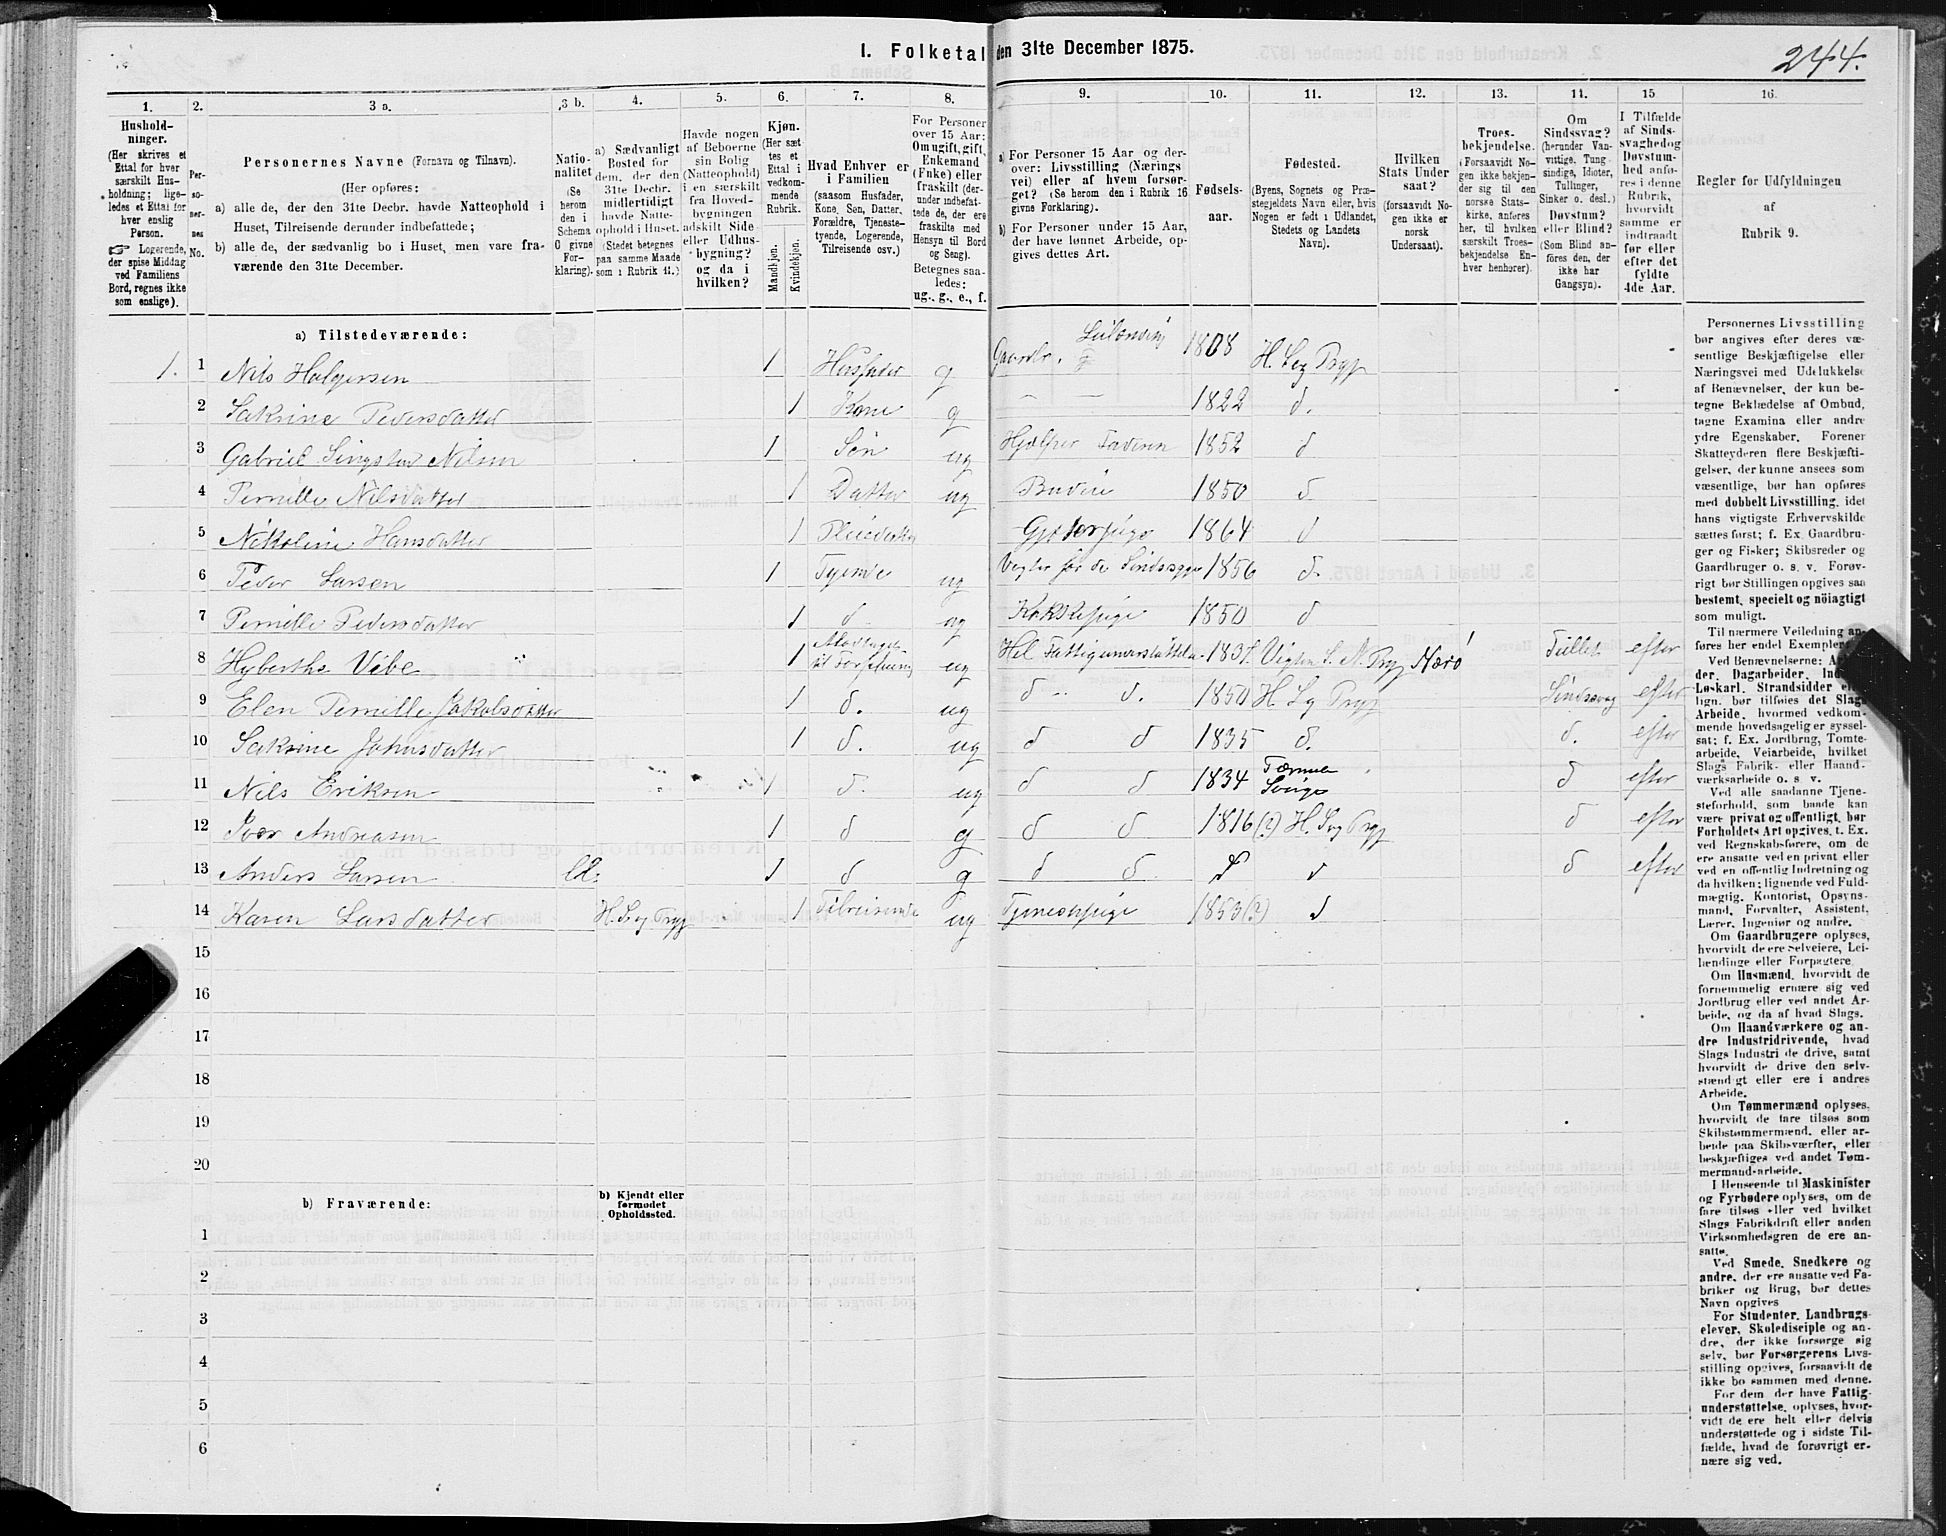 I. Folketal den 31te December 1875.
244.
1. 2. 3 a. 3 b. 4. 5. 6. 7. 8. 9. 10. 11. 12. 13. 14. 15 16.
Hushold-
ninger.
(Her skrives et
Ettal for hver
særskilt Hus-
holdning; lige-
ledes et Ettal for
hver enslig
Person.
☞ Logerende,
der spise Middag
ved Familiens
Bord, regnes ikke
som enslige).
Per-
so-
ner-
nes
No.
Personernes Navne (Fornavn og Tilnavn).
(Her opføres:
a) alle de, der den 31te Decbr. havde Natteophold i
Huset, Tilreisende derunder indbefattede;
b) alle de, der sædvanlig bo i Huset, men vare fra-
værende den 31te December.
Natio-
nalitet
(Se
herom
den i
Schema
O givne
For-
klaring).
a) Sædvanligt
Bosted for
dem, der den
31te Decbr.
midlertidigt
havde Natte-
ophold i Huset.
(Stedet betegnes
paa samme Maade
som i Rubrik 11.)
Havde nogen
af Beboerne
sin Bolig
(Natteophold)
i en særskilt
fra Hoved-
bygningen
adskilt Side-
eller Udhus-
bygning?
og da i
hvilken?
Kjøn.
(Her sæt-
tes et
Ettal i
vedkom-
mende
Rubrik.
Mandkjøn.
Kvindekjøn.
Hvad Enhver er
i Familien
(saasom Husfader,
Kone, Søn, Datter,
Forældre, Tjeneste-
tyende, Logerende,
Tilreisende osv.)
For Personer
over 15 Aar:
Om ugift, gift,
Enkemand
(Enke) eller
fraskilt (der-
under indbefat-
tede de, der ere
fraskilte med
Hensyn til Bord
og Seng).
Betegnes saa-
ledes:
ug., g., e., f.
a) For Personer 15 Aar og der-
over: Livsstilling (Nærings-
vei) eller af hvem forsør-
get? (Se herom den i Rubrik 16
givne Forklaring).
b) For Personer under 15 Aar,
der have lønnet Arbeide, op-
gives dettes Art.
Fødsels-
aar.
Fødested.
(Byens, Sognets og Præ-
stegjeldets Navn eller, hvis
Nogen er født i Udlandet,
Stedets og Landets
Navn).
Hvilken
Stats Under
saat?
(forsaavidt No-
gen ikke er
norsk
Undersaat).
Troes-
bekjendelse.
(Forsaavidt No-
gen ikke bekjen-
der sig til den
norske Stats-
kirke, anføres
her, til hvilken
særskilt Troes-
bekjendelse En-
hver henhører).
Om
Sindssvag?
(herunder Van-
vittige, Tung-
sindige, Idioter,
Tullinger,
Sinker o. desl.)
Døvstum?
eller Blind?
(Som Blind an-
føres den, der
ikke har
Gangsyn).
I Tilfælde
af Sinds-
svaghed og
Døvstum-
hed anfø-
res i denne
Rubrik,
hvorvidt
samme er
indtraadt
før eller
efter det
fyldte
4de Aar.
Regler for Udfyldningen
af
Rubrik 9.
a) Tilstedeværende:
1. 1 Nils Halgersen 1 Husfader g Gaardbr. 1808 H. Sog Prgj
2 Sakrine Pedersdatter 1 Kone g — — 1822 d.
3 Gabriel Nilsen 1 Søn ug Hjælper Faderen 1852 d
4 Pernille Nilsdatter 1 Datter ug Budeie 1850 d
5 Nikoline Hansdatter 1 Pleiedatter Gjæterpige 1864 d
6 Peder Larsen 1 Tyende ug Vogter for de Sindssyge 1856 d.
7 Pernille Pedersdatter 1 d ug Kokkepige 1850 d
8 Hyberthe Vibe 1 til Forpleining ug Hel Fattigunderstøttelse 183 Vigten S. N. Prgj Nærø Tullet efter
9 Elen Pernille Jakobsdatter 1 d. ug d d. 1850 H. Sog Prgj Sindssvag efter
10 Sakrine Johnsdatter 1 d. ug d d 1835 d. d. efter
11 Nils Eriksen 1 d. ug d d 1834 d efter
12 Ivar Andreasen 1 d g d d 1816 (?) H. Sog Prgj d efter
13 Anders Larsen 1 d g d d d d efter
14 Karen Larsdatter H. Sog Prgj 1 Tilreisende ug Tjenestpige 1853 (?) d
15
16
17
18
19
20
b) Fraværende:
b) Kjendt eller
formodet
Opholdssted.
1
2
3
4
5
6
Personernes Livsstilling
bør angives efter deres væ-
sentlige Beskjæftigelse eller
Næringsvei med Udelukkelse
af Benævnelser, der kun be-
tegne Beklædelse af Ombud,
tagne Examina eller andre
ydre Egenskaber. Forener
Skatteyderen flere Beskjæfti-
gelser, der kunne ansees som
væsentlige, bør han opføres
med dobbelt Livsstilling, idet
hans vigtigste Erhvervskilde
sættes først; f. Ex. Gaardbru-
ger og Fisker; Skibsreder og
Gaardbruger o. s. v. Forøv-
rigt bør Stillingen opgives saa
bestemt, specielt og nöiagtigt
som muligt.
Til nærmere Veiledning an-
føres her endel Exempler:
Ved Benævnelserne:
der, Dagarbeider,
Løskarl, Strandsidder
lign. bør tilføies det Slags
Arbeide, hvormed vedkom-
mende hovedsagelig er syssel-
sat; f. Ex. Jordbrug, Tomte-
arbeide, Veiarbeide, hvilket
Slags Fabrik- eller Haand-
værksarbeide o. s. v.
Ved alle saadanne Tjene-
steforhold, som baade kan
være privat og offentligt, bør
Forholdets Art opgives, t. Ex.
ved Regnskabsførere, om de
ere ansatte ved en privat eller
ved en offentlig Indretning og
da hvilken; lignende ved Fuld-
mægtig, Kontorist, Opsyns-
mand, Forvalter, Assistent,
Lærer, Ingeniør og andre.
Om Gaardbrugere oplyses,
hvorvidt de ere Selveiere, Lei-
lændinge eller Forpagtere.
Om Husmænd, hvorvidt de
fornemmelig ernære sig ved
Jordbrug eller ved andet Ar-
beide, og da af hvad Slags.
Om Haandværkere og an-
dre Industridrivende, hvad
Slags Industri de drive, samt
hvorvidt de drive den selv-
stændigt eller ere i andres
Arbeide.
Om Tømmermænd oplyses,
hvorvidt de fare tilsøs som
Skibstømmermænd, eller ar-
beide paa Skibsværfter, eller
beskjæftiges ved andet Tøm-
mermandsarbeide.
I Henseende til Maskinister
og Fyrbødere oplyses, om de
fare tilsøs eller ved hvilket
Slags Fabrikdrift eller anden
Virksomhedsgren de ere an-
satte.
Ved Smede, Snedkere og
andre, der ere ansatte ved Fa-
briker og Brug, bør dettes
Navn opgives
For Studenter, Landbrugs-
elever, Skoledisciple og an-
dre, der ikke forsørge sig
selv, bør Forsørgerens Livs-
stilling opgives, forsaavidt de
ikke bo sammen med denne.
For dem, der have Fattig-
understøttelse, oplyses, hvor-
vidt de ere helt eller delvis
understøttede og i sidste Til-
fælde, hvad de forøvrigt er-
nære sig ved.